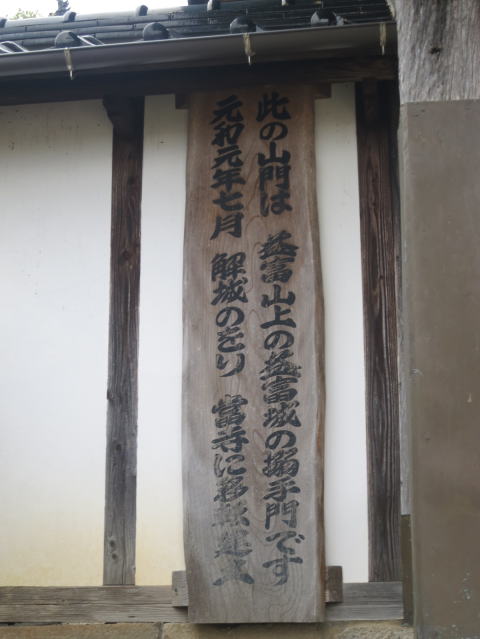 此の山門は 益富山上の益富城の搦手門です
元和元年七月 解城のをり 當寺に移築建立